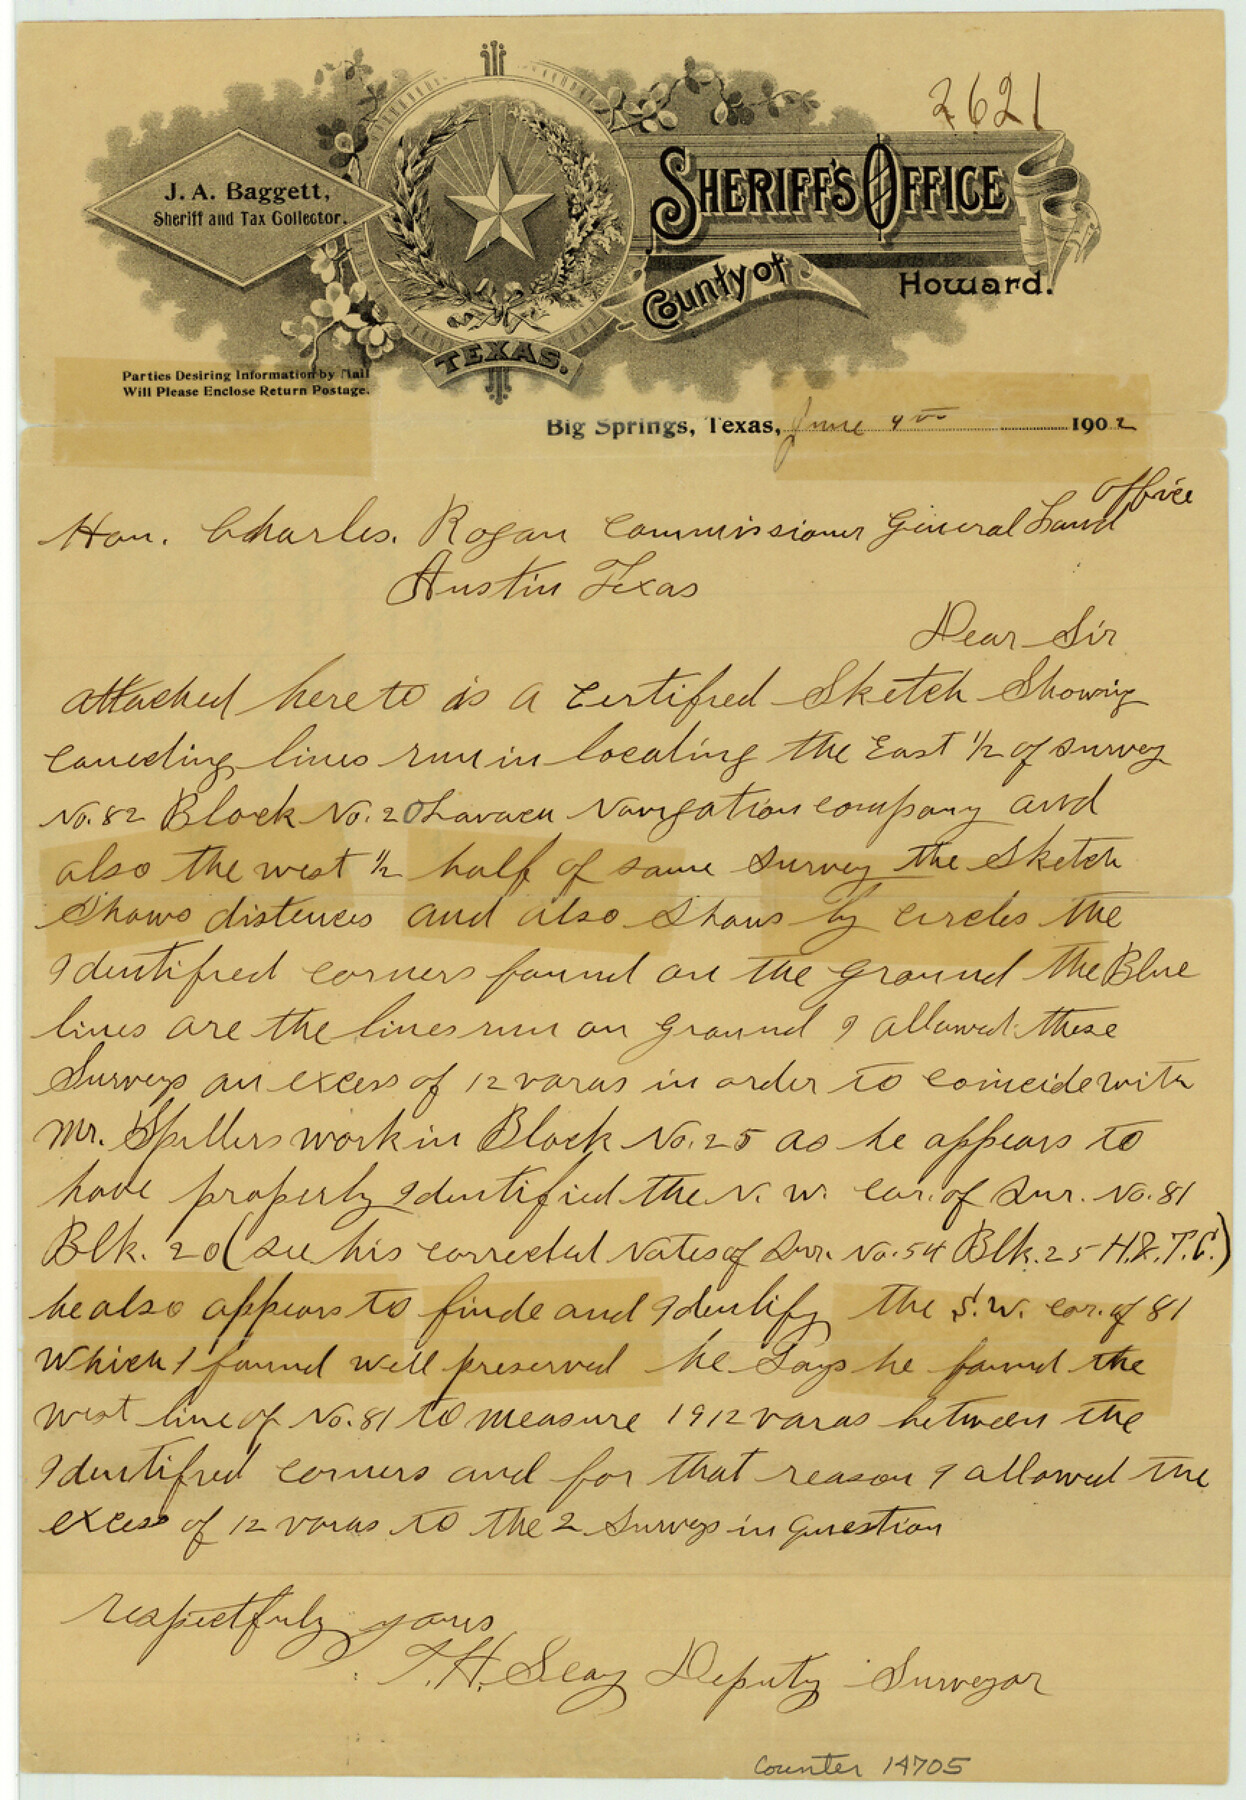 2621
J. A. Baggett,
Sheriff and Tax Collector.
SHERIFF'S OFFICE
County of
Howard.
TEXAS.
Parties Desiring Information by Mail
Will Please Enclose Return Postage.
Big Springs, Texas, June 9th 1902
Office
Hon. Charles. Rogan Commissioner General Land
Austin Texas
Dear Sir
attached here to is a certified Sketch Showing
conecting lines run in locating the East 1/2 of survey
No. 82 Block No. 20 Lavaca Navigation company and
also the west 1/2 half of same survey the Sketch
Shows distences and also Shows by circles the
Identified corners found on the ground the Blue
lines are the lines run on ground I allowed these
Surveys an excess of 12 varas in order to coincide with
Mr. Spillers work in Block No. 25 as he appears to
have properly Identified the N. W. cor. of Sur. No. 81
Blk. 20 (see his corrected Notes of Sur. No. 54 Blk. 25 H.&.T.C.)
he also appears to finde and Identify the S.W. cor. of 81
Which I found well preserved he Says he found the
west line of No. 81 to measure 1912 varas between the
Identified corners and for that reason I allowed the
excess of 12 varas to the 2 Surveys in question
respectfuly yours
T. H. Seay Deputy Surveyor
Counter 14705